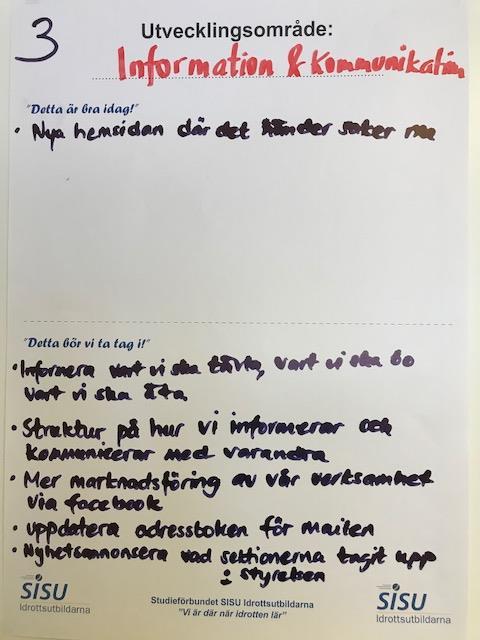 3
Utvecklingsområde:
Information & Kommunikation
"Detta är bra idag!"
• Nya hemsidan där det händer saker nu
"Detta bör vi ta tag i!"
• Informera vart vi ska tävla, vart vi ska bo
vart vi ska äta
• Struktur på hur vi informerar och
kommunicerar med varandra
• Mer marknadsföring av vår verksamhet
via facebook
• uppdatera adressboken för mailen
• Nyhetsannonsera vad sektionerna tagit upp
i styrelsen
SISU
Idrottsutbildarna
Studieförbundet SISU Idrottsutbildarna
"Vi är där när idrotten lär"
SISU
Idrottsutbildarna